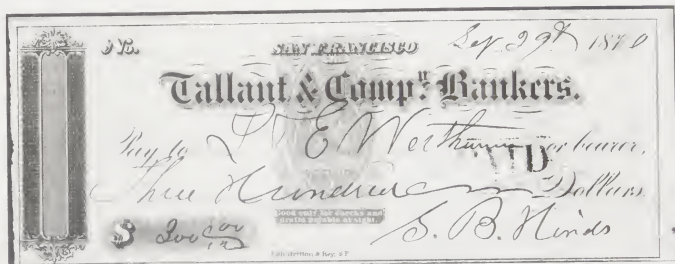 No. SAN FRANCISCO Sep 29th 1870
Tallant & Compy. Bankers.
Pay to E Wertheimer or bearer,
Three Hundred Dollars
Good only for checks and
drafts payable at sight.
$ 300 00/100 S. B. Hinds